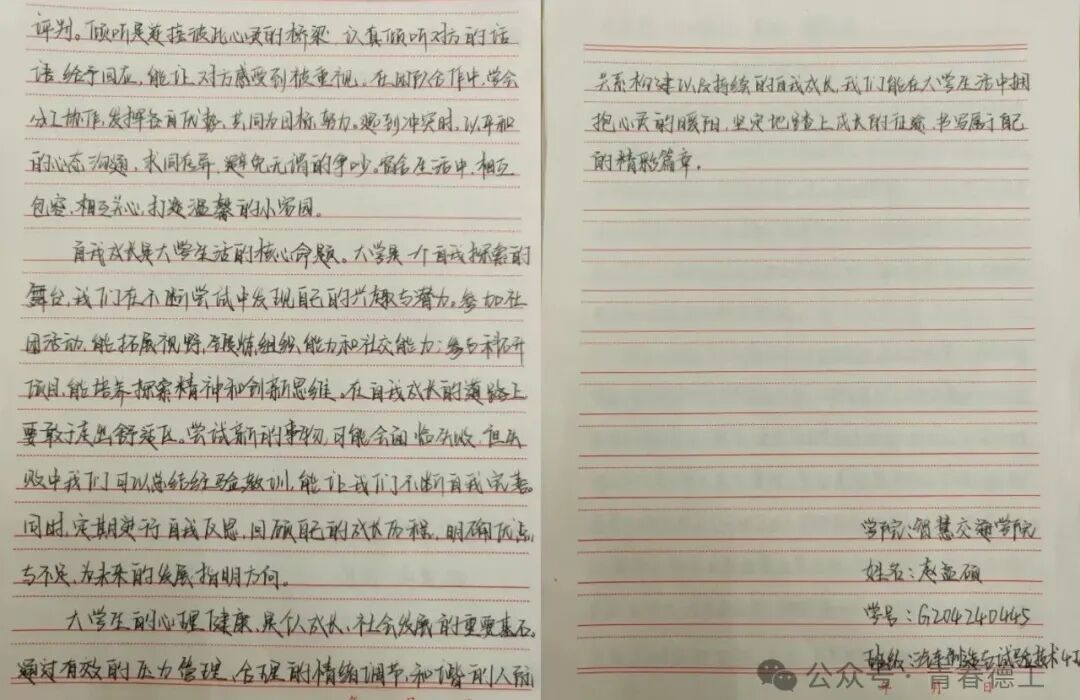 评判。倾听是连接彼此心灵的桥梁，认真倾听对方的话
语，给予回应，能让对方感受到被重视。在团队合作中，学会
分工协作，发挥各自优势，共同为目标努力。遇到冲突时，以平和
的心态沟通，求同存异，避免无谓的争吵。宿舍生活中，相互
包容，相互关心，打造温馨的小家园。
自我成长是大学生活的核心命题。大学是一个自我探索的
舞台，我们在不断尝试中发现自己的兴趣与潜力。参加社
团活动，能拓展视野，锻炼组织能力和社交能力；参与科研
项目，能培养探索精神和创新思维。在自我成长的道路上
要敢于走出舒适区。尝试新的事物，可能会面临失败，但失
败中我们可以总结经验教训，能让我们不断自我完善。
同时，定期进行自我反思，回顾自己的成长历程，明确优点
与不足，为未来的发展指明方向。
大学生的心理健康，是个人成长、社会发展的重要基石。
通过有效的压力管理、合理的情绪调节、和谐的人际
关系构建以及持续的自我成长，我们能在大学生活中拥
抱心灵的暖阳，坚定地踏上成长的征途，书写属于自己
的精彩篇章。
学院：智慧交通学院
姓名：赵益硕
学号：G204240445
班级：汽车制造与试验技术4
年 月 日
公众号·青春德工